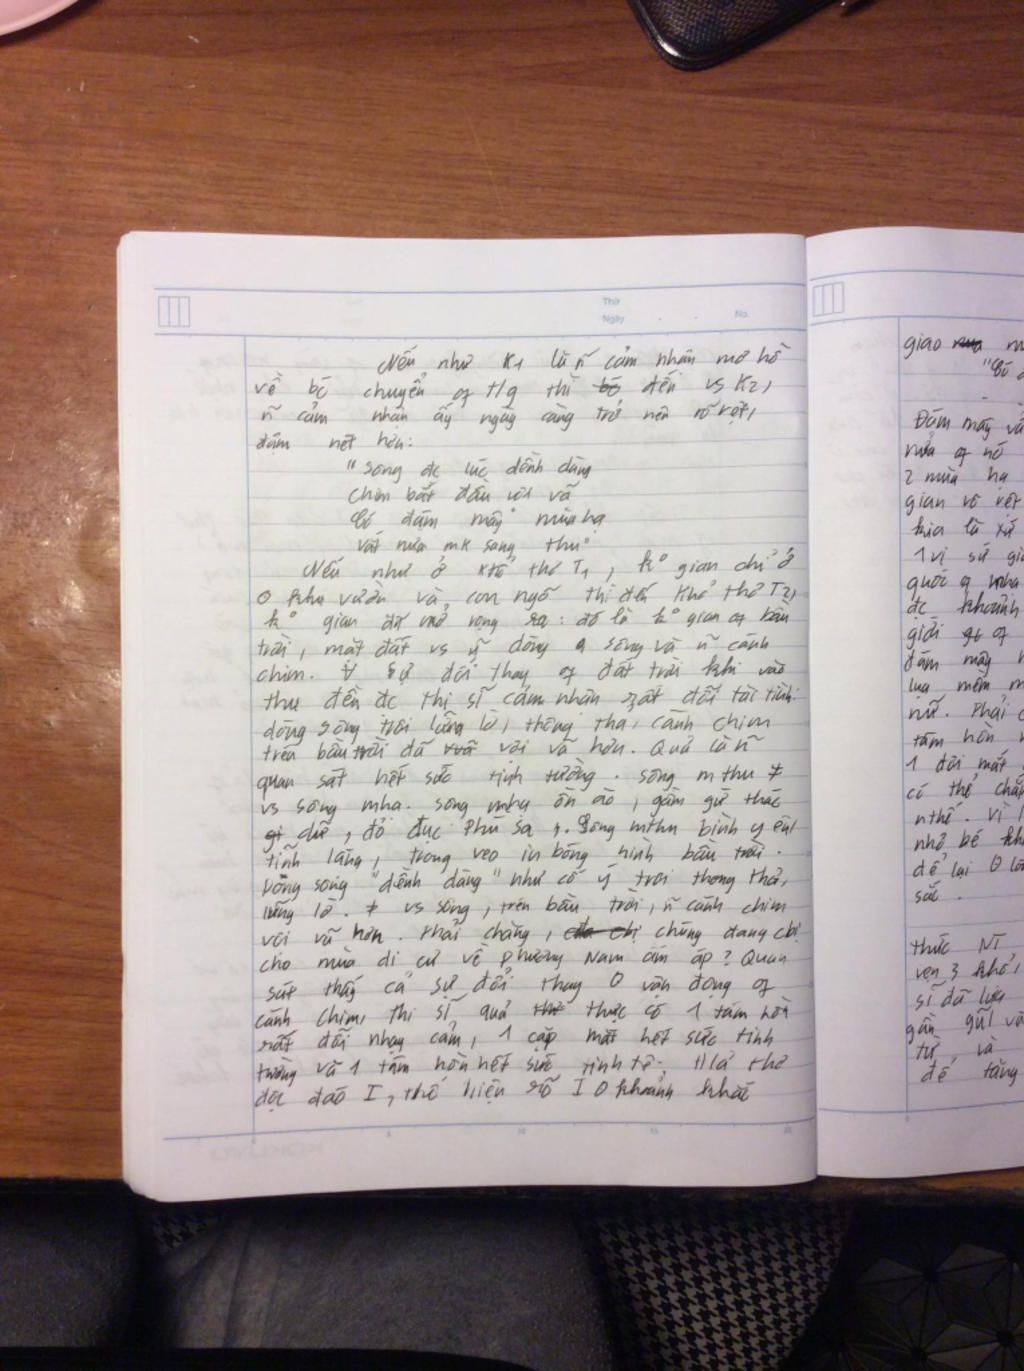 Thứ
Ngày . . No.
Nếu như K1 là ~ cảm nhận mơ hồ
về bc chuyển of t/g thì đến vs K2,
~ cảm nhận ấy ngày càng trở nên rõ rệt,
đậm nét hơn:
"Sông đc lúc dềnh dàng
Chim bắt đầu vội vã
Có đám mây mùa hạ
Vắt nửa mk sang thu"
Nếu như ở khổ thơ T1, ko gian chỉ ở
khu vườn và con ngõ thì đến khổ thơ T2,
ko gian đã mở rộng ra: đó là ko gian of bầu
trời, mặt đất vs dòng sông và ~ cánh
chim. ∀ sự đổi thay of đất trời khi vào
thu đến đc thi sĩ cảm nhận rất đỗi tài tình:
dòng sông trôi lững lờ, thông tha, cánh chim
trên bầu trời đã vội vã hơn. Quả là ~
quan sát hết sức tinh tường. Sông m thu ≠
vs sông mhạ. Sông mhạ ồn ào, gầm gừ thác
dữ, đỏ đục phù sa. Sông mthu bình yên,
tĩnh lặng, trong veo in bóng hình bầu trời.
Dòng sông "dềnh dàng" như cố ý trôi thong thả,
lững lờ. ≠ vs sông, trên bầu trời, ~ cánh chim
vội vã hơn. Phải chăng, chúng đang cbị
cho mùa di cư về phương Nam ấm áp? Quan
sát thấy cả sự đổi thay vận động of
cánh chim, thi sĩ quả thực có 1 tâm hồn
rất đỗi nhạy cảm, 1 cặp mắt hết sức tinh
tường và 1 tâm hồn hết sức tinh tế. thơ
độc đáo I, thể hiện rõ I khoảnh khắc
giao
"Có
Đám mây
nửa of nó
2 mùa hạ
gian vô
kia là
1 vị sứ
quốc of
đc khoảnh
giới of
đám mây
lụa mềm
nữ. Phải
tâm hồn
1 đôi mắt
có thể
nthế. Vì
nhỏ bé
để lại
sắc.
thức NT
vẹn 3 khổ,
sĩ đã
gần gũi
từ và
để tăng